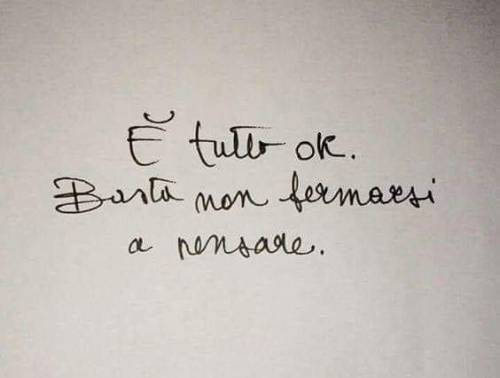 È tutto ok.
Basta non fermarsi
a pensare.